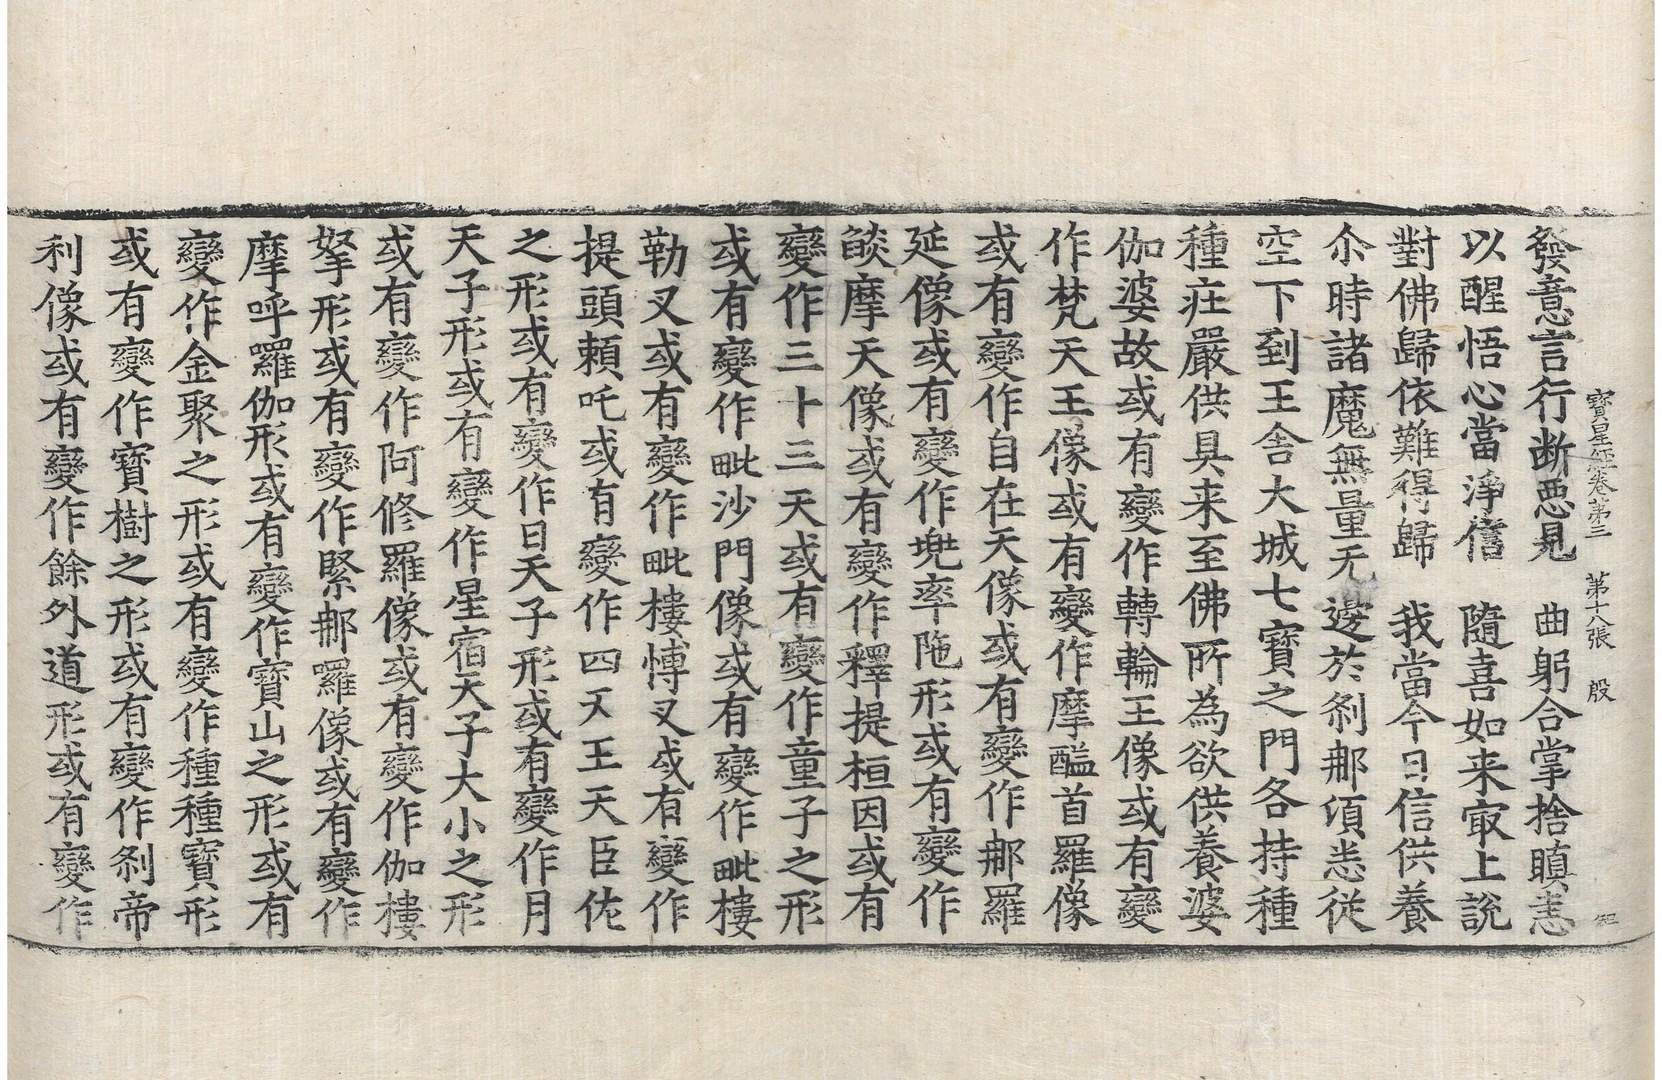 寶星經卷第三　第十八張　殷
發意言行断惡見　曲躬合掌捨瞋恚
以醒悟心當淨信　隨喜如来㝡上說
對佛歸依難得歸　我當今日信供養
尒時諸魔無量无邊於刹那湏悉從
空下到王舍大城七寶之門各持種
種疘嚴供具来至佛所為欲供養婆
伽婆故或有變作轉輪王像或有變
作梵天王像或有變作摩醯首羅像
或有變作自在天像或有變作那羅
延像或有變作兠率陁形或有變作
燄摩天像或有變作釋提桓因或有
變作三十三天或有變作童子之形
或有變作毗沙門像或有變作毗樓
勒叉或有變作毗樓愽叉或有變作
提頭頼吒或有變作四天王天臣佐
之形或有變作日天子形或有變作月
天子形或有變作星宿天子大小之形
或有變作阿修羅像或有變作伽樓
拏形或有變作緊那羅像或有變作
摩呼囉伽形或有變作寶山之形或有
變作金聚之形或有變作種種寶形
或有變作寶樹之形或有變作刹帝
利像或有變作餘外道形或有變作